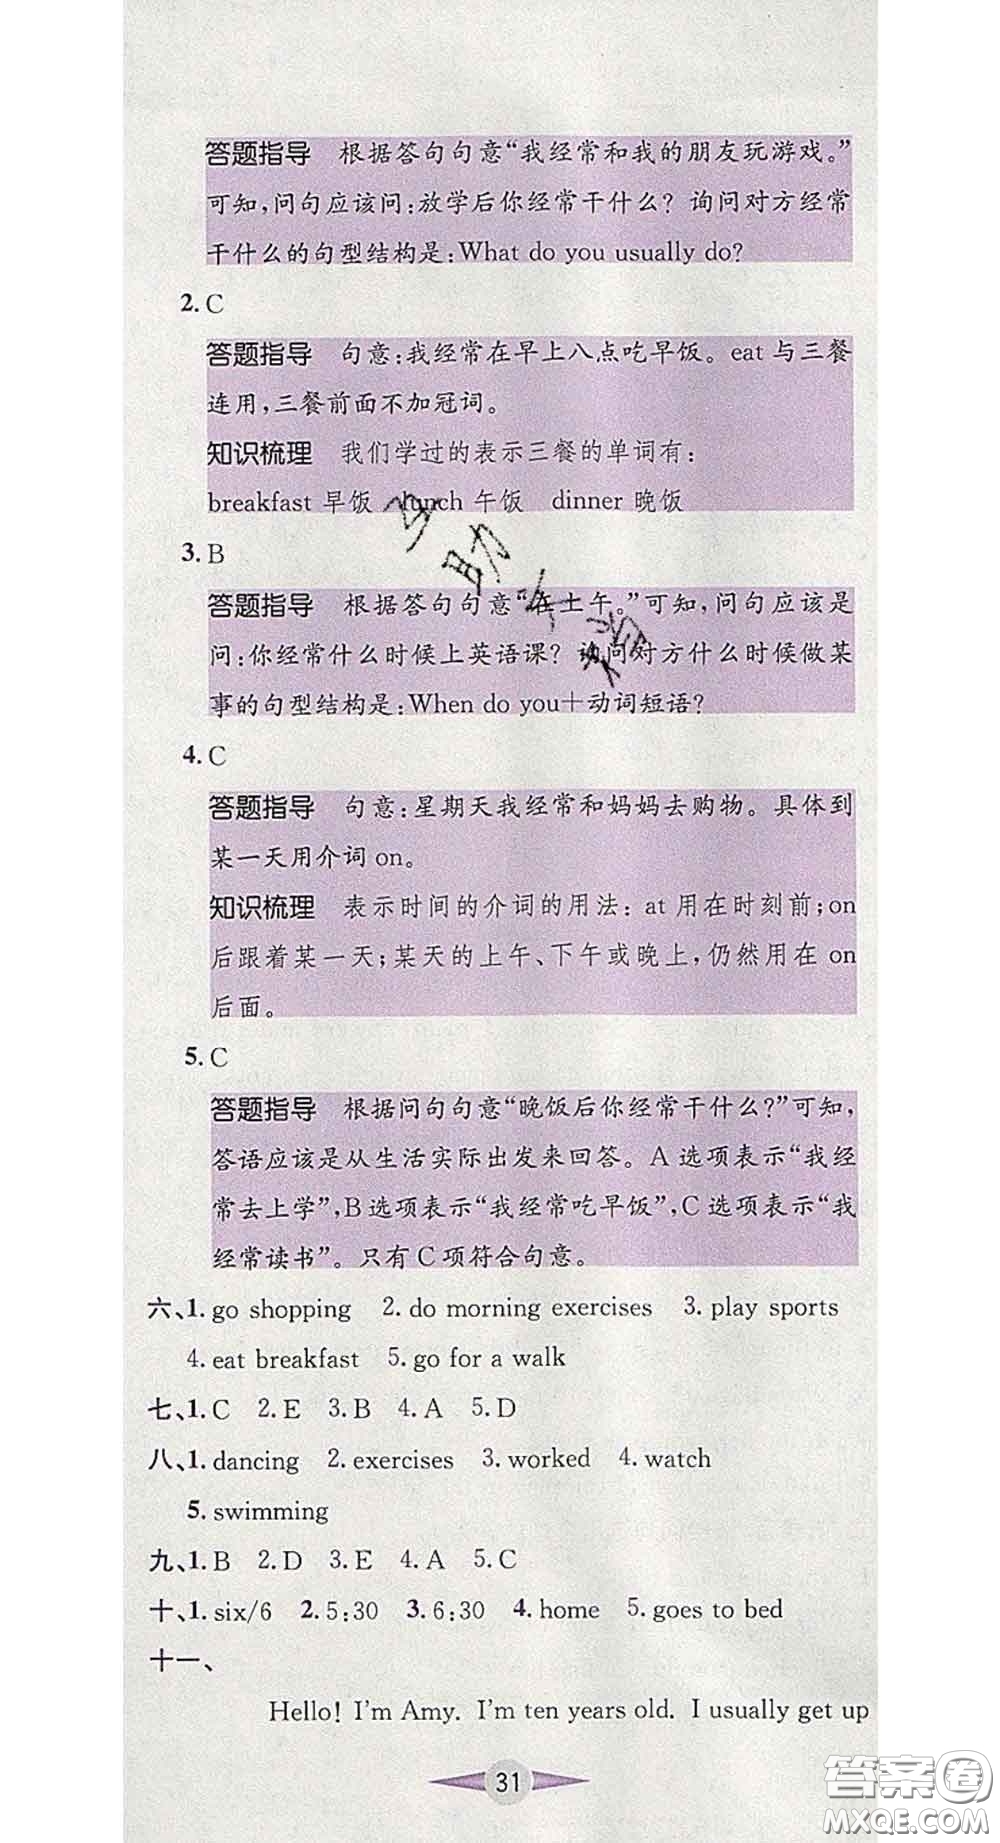 答题指导 根据答句句意“我经常和我的朋友玩游戏。”
可知,问句应该问:放学后你经常干什么? 询问对方经常
干什么的句型结构是:What do you usually do?
2. C
答题指导 句意:我经常在早上八点吃早饭。eat 与三餐
连用,三餐前面不加冠词。
知识梳理 我们学过的表示三餐的单词有:
breakfast 早饭 lunch 午饭 dinner 晚饭
3. B
答题指导 根据答句句意“在上午。”可知,问句应该是
问:你经常什么时候上英语课? 询问对方什么时候做某
事的句型结构是:When do you+动词短语?
4. C
答题指导 句意:星期天我经常和妈妈去购物。具体到
某一天用介词 on。
知识梳理 表示时间的介词的用法: at 用在时刻前;on
后跟着某一天;某天的上午、下午或晚上,仍然用在 on
后面。
5. C
答题指导 根据问句句意“晚饭后你经常干什么?”可知,
答语应该是从生活实际出发来回答。A 选项表示“我经
常去上学”,B 选项表示“我经常吃早饭”,C 选项表示“我
经常读书”。只有 C 项符合句意。
六、1. go shopping 2. do morning exercises 3. play sports
4. eat breakfast 5. go for a walk
七、1. C 2. E 3. B 4. A 5. D
八、1. dancing 2. exercises 3. worked 4. watch
5. swimming
九、1. B 2. D 3. E 4. A 5. C
十、1. six/6 2. 5:30 3. 6:30 4. home 5. goes to bed
十一、
Hello! I'm Amy. I'm ten years old. I usually get up
31
答案圈
MXQE.COM